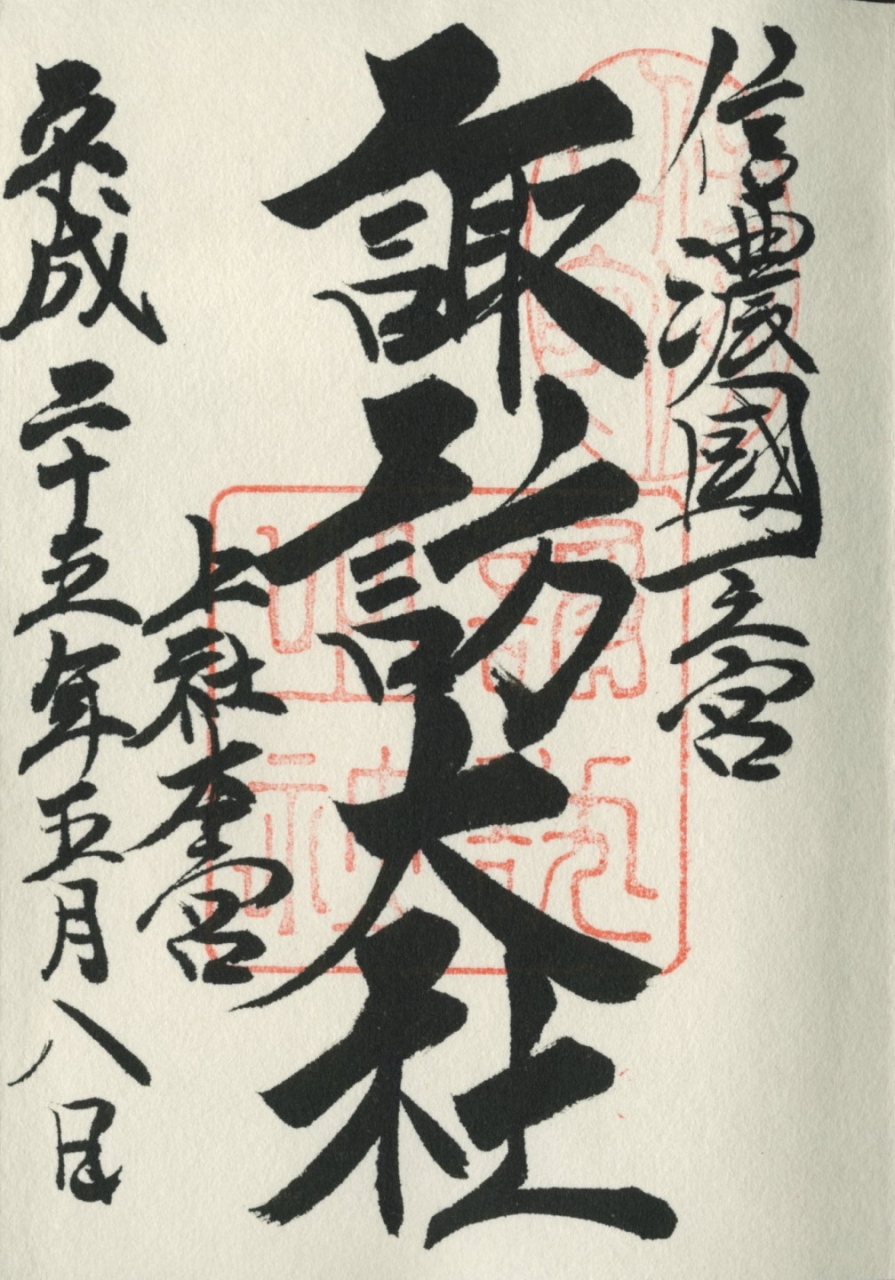 信濃國一之宮
諏訪大社
上社本宮
平成二十五年五月八日